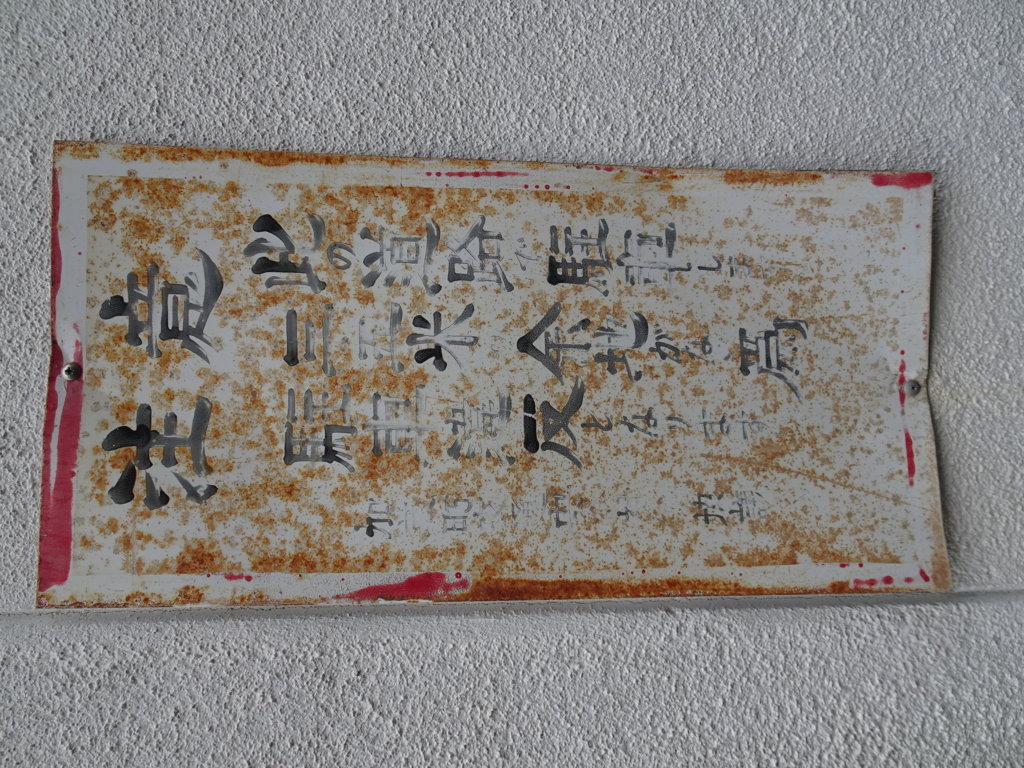 注意
此の道路で駐車しま
三五米の余地がない為
駐車違反となります